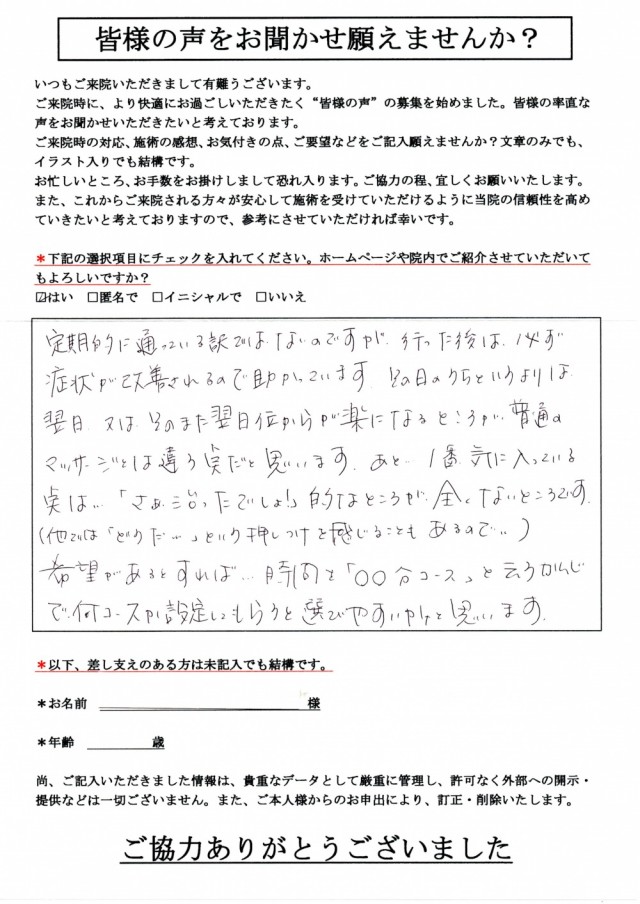 皆様の声をお聞かせ願えませんか？
いつもご来院いただきまして有難うございます。
ご来院時に、より快適にお過ごしいただきたく“皆様の声”の募集を始めました。皆様の率直な
声をお聞かせいただきたいと考えております。
ご来院時の対応、施術の感想、お気付きの点、ご要望などをご記入願えませんか？文章のみでも、
イラスト入りでも結構です。
お忙しいところ、お手数をお掛けしまして恐れ入ります。ご協力の程、宜しくお願いいたします。
また、これからご来院される方々が安心して施術を受けていただけるように当院の信頼性を高め
ていきたいと考えておりますので、参考にさせていただければ幸いです。
＊下記の選択項目にチェックを入れてください。ホームページや院内でご紹介させていただいて
もよろしいですか？
☑はい　□匿名で　□イニシャルで　□いいえ
定期的に通っている訳ではないのですが、行った後は、必ず
症状が改善されるので助かっています。その日のうちというよりは
翌日、又は、そのまた翌日位からが楽になるところが、普通の
マッサージとは違う点だと思います。あと…1番気に入っている
点は…「さぁ治ったでしょ!」的なところが、全くないところです。
(他では「どうだ…」という押しつけを感じることもあるので…)
希望があるとすれば…時間を「〇〇分コース」と云うかんじ
で、何コースか設定してもらうと選びやすいかなと思います。
＊以下、差し支えのある方は未記入でも結構です。
＊お名前　様
＊年齢　歳
尚、ご記入いただきました情報は、貴重なデータとして厳重に管理し、許可なく外部への開示・
提供などは一切ございません。また、ご本人様からのお申出により、訂正・削除いたします。
ご協力ありがとうございました